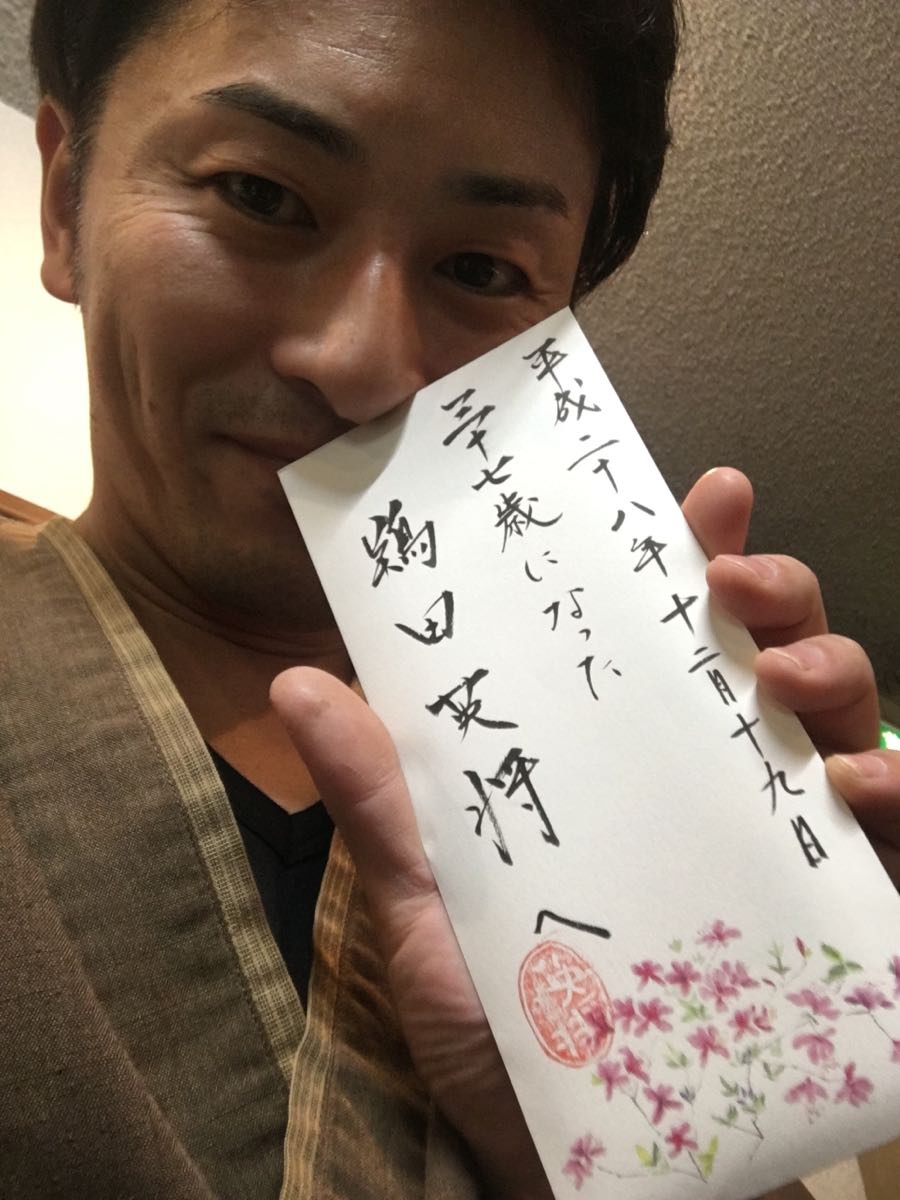 平成二十八年十二月十九日
三十七歳になった
鶏田英将へ